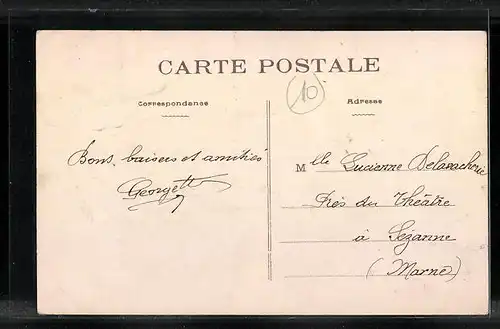 CARTE POSTALE
10
Correspondance
Adresse
Bons baisers et amitiés
Georgette
Mlle Lucienne Delavacherie
Près du Théâtre
à Sezanne
(Marne)